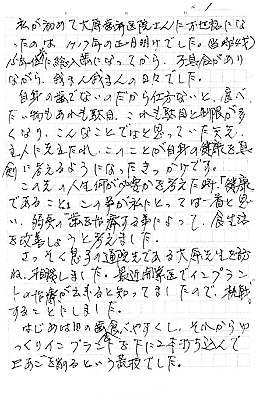 私が初めて大原歯科医院さんにお世話になっ
たのは、H19年の正月明けでした。(当時64才)
に総入歯になってから、不具合があり
ながら、我まん我まんの日々でした。
自身の歯でないのだから仕方ないと、食べ
たい物もあれも駄目、これも駄目と制限が多
くなり、こんなことではと思っていた矢先、
主人に先立たれ、このことが自身の健康を真
剣に考えるようになったきっかけです。
この先の人生何が必要かを考えた時、"健康
であること"この事が私にとっては一番と思
い、弱点の"歯"を治療する事によって、食生活
を改善しようと考えました。
さっそく息子の同級生である大原先生を訪
ね、相談しました。最近開業医でインプラン
トの治療が出来ると知ってましたので、挑戦
することにしました。
はじめは旧の歯を食べやすくし、それからゆ
っくりインプラントを下に2本打ち込んで
上あごを削るという最後でした。